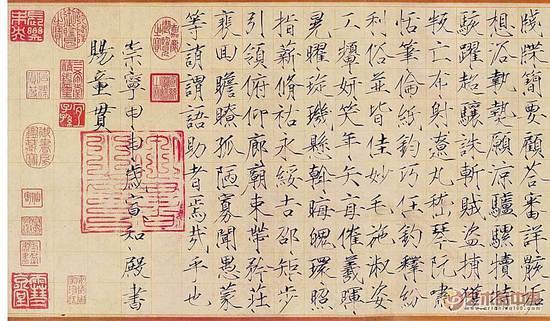 牋牒簡要顧答審詳骸垢
想浴執熱願涼驢騾犢特
駭躍超驤誅斬賊盜捕獲
叛亡布射遼丸嵇琴阮嘯
恬筆倫紙鈞巧任釣釋紛
利俗並皆佳妙毛施淑姿
工顰妍笑年矢每催羲暉
晃曜琁璣懸斡晦魄環照
指薪修祜永綏吉邵矩步
引領俯仰廊廟束帶矜莊
裵回瞻眺孤陋寡聞愚蒙
等誚謂語助者焉哉乎也
崇寧甲申歲宣和殿書
賜童貫